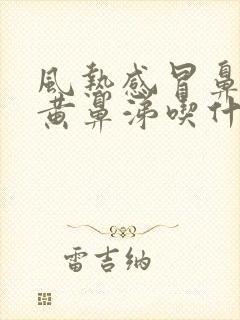 風熱感冒鼻
黄鼻涕喫什
雷吉纳